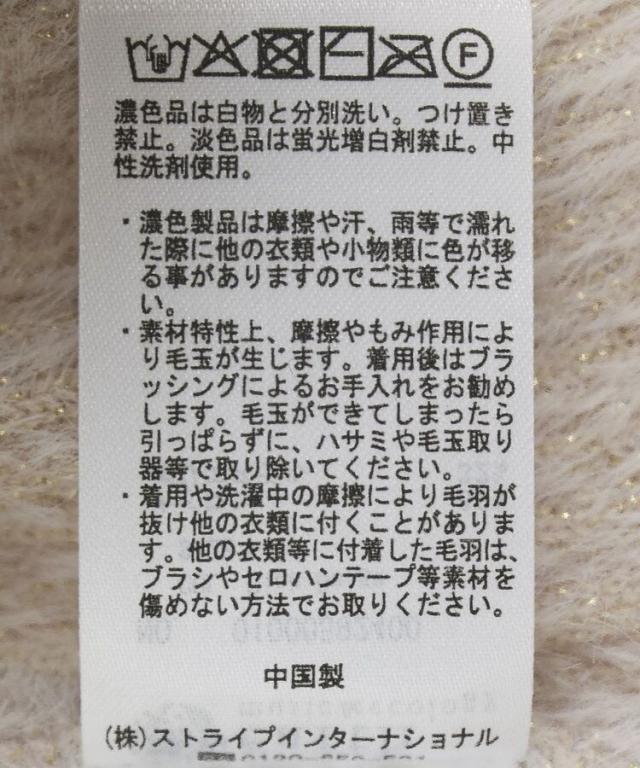 F
濃色品は白物と分別洗い。つけ置き
禁止。淡色品は蛍光増白剤禁止。中
性洗剤使用。
・濃色製品は摩擦や汗、雨等で濡れ
た際に他の衣類や小物類に色が移
る事がありますのでご注意くださ
い。
・素材特性上、摩擦やもみ作用によ
り毛玉が生じます。着用後はブラ
ッシングによるお手入れをお勧め
します。毛玉ができてしまったら
引っぱらずに、ハサミや毛玉取り
器等で取り除いてください。
・着用や洗濯中の摩擦により毛羽が
抜け他の衣類に付くことがありま
す。他の衣類等に付着した毛羽は、
ブラシやセロハンテープ等素材を
傷めない方法でお取りください。
中国製
(株)ストライプインターナショナル